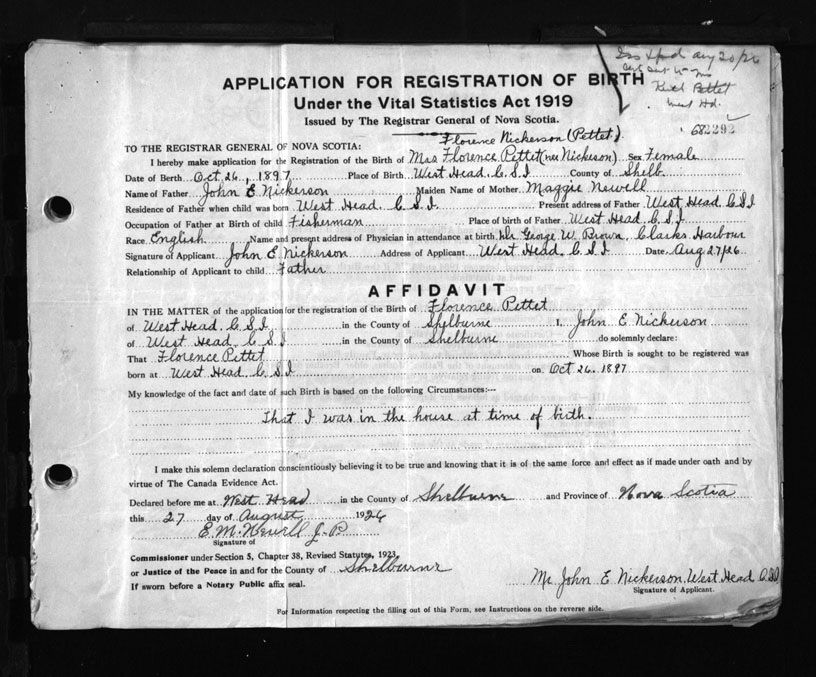 APPLICATION FOR REGISTRATION OF BIRTH
Under the Vital Statistics Act 1919
Issued by The Registrar General of Nova Scotia.
Pettet
West Hd.
682292
Florence Nickerson (Pettet).
TO THE REGISTRAR GENERAL OF NOVA SCOTIA:
I hereby make application for the Registration of the Birth of Mrs Florence Pettet (nee Nickerson) Sex Female
Date of Birth Oct 26, 1897 Place of Birth West Head C.S.I. County of Shelb.
Name of Father John E Nickerson Maiden Name of Mother Maggie Newell
Residence of Father when child was born West Head C.S.I. Present address of Father West Head C.S.I
Occupation of Father at Birth of child Fisherman Place of birth of Father West Head C.S.I.
Race English Name and present address of Physician in attendance at birth Dr George W Brown, Clarks Harbour
Signature of Applicant John E Nickerson Address of Applicant West Head, C.S.I Date Aug 27/26
Relationship of Applicant to child Father
AFFIDAVIT
IN THE MATTER of the application for the registration of the Birth of Florence Pettet
of West Head C.S.I. in the County of Shelburne I, John E Nickerson
of West Head, C.S.I in the County of Shelburne do solemnly declare:
That Florence Pettet Whose Birth is sought to be registered was
born at West Head, C.S.I on Oct 26, 1897
My knowledge of the fact and date of such Birth is based on the following Circumstances:—
That I was in the house at time of birth.
I make this solemn declaration conscientiously believing it to be true and knowing that it is of the same force and effect as if made under oath and by
virtue of The Canada Evidence Act.
Declared before me at West Head in the County of Shelburne and Province of Nova Scotia
this 27 day of August 1926
E. M. Newell J.P.
Signature of
Commissioner under Section 5, Chapter 38, Revised Statutes, 1923,
or Justice of the Peace in and for the County of Shelburne
If sworn before a Notary Public affix seal.
Mr John E Nickerson, West Head C.S.I
Signature of Applicant.
For Information respecting the filling out of this Form, see Instructions on the reverse side.